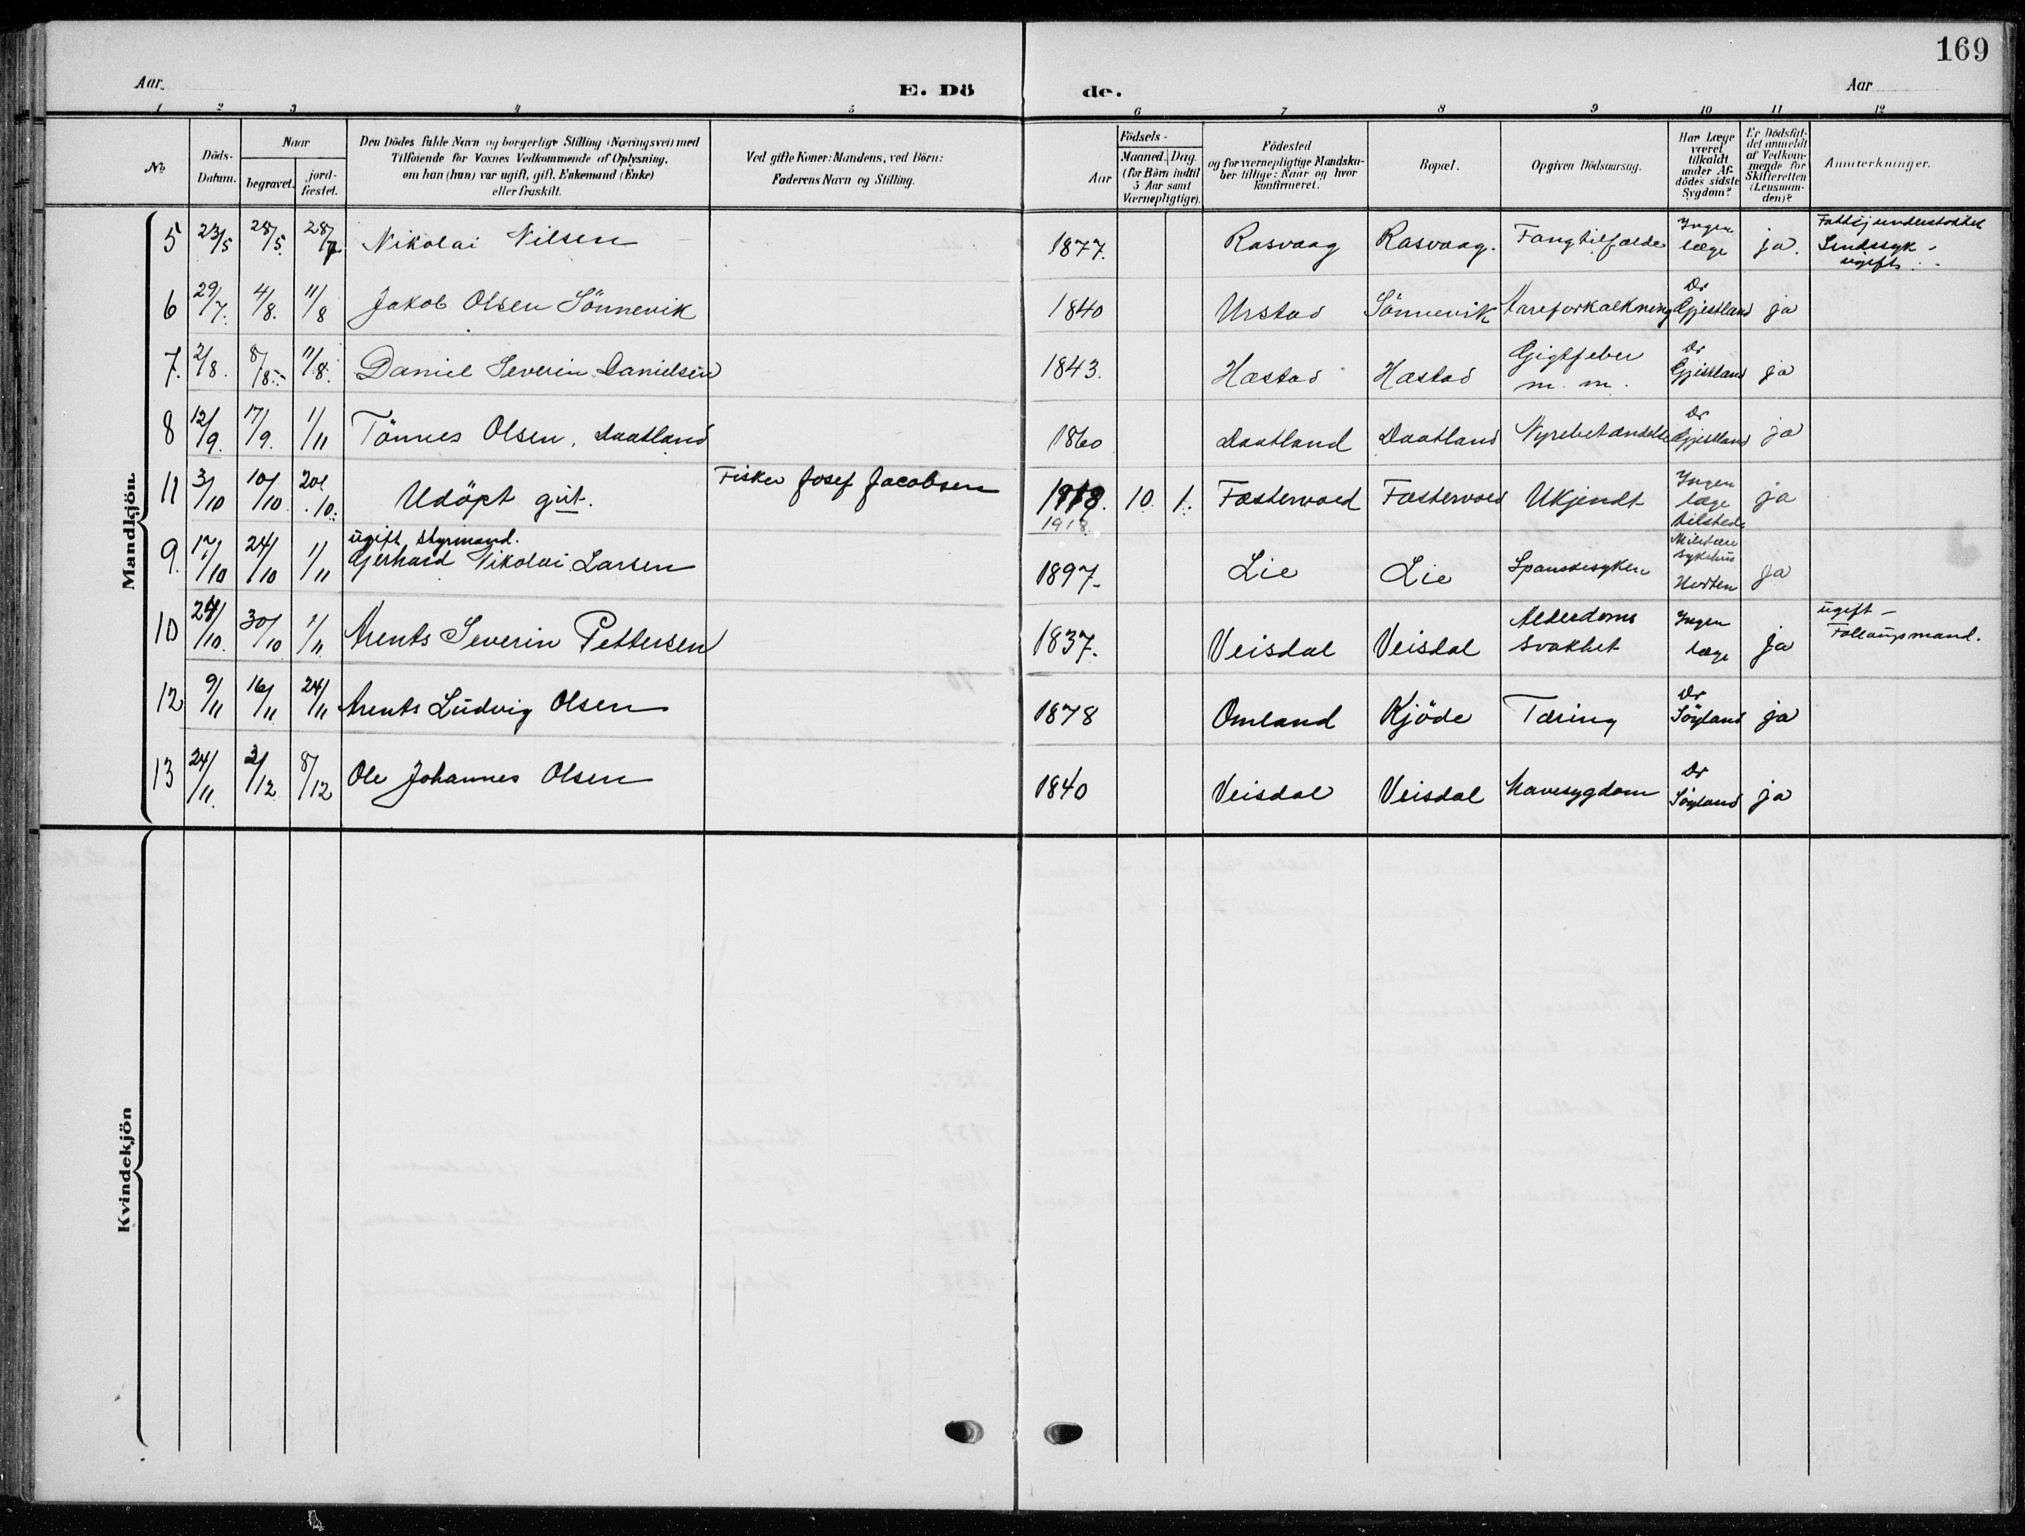 169
Aar E. Dö de. Aar
1 2 3 4 5 6 7 8 9 10 11 12
No. Döds-Datum. Naar begravet. jordfæstet. Den Dödes fulde Navn og borgerlige Stilling (Næringsvei) med Tilföiende for Voxnes Vedkommende af Oplysning, om han (hun) var ugift, gift, Enkemand (Enke) eller fraskilt. Ved gifte Koner: Mandens, ved Börn: Faderens Navn og Stilling. Födsels- Aar Maaned. Dag. (for Börn indtil 5 Aar samt Værnepligtige). Födested og for værnepligtige Mandskaber tillige: Naar og hvor konfirmeret. Bopæl. Opgiven Dödsaarsag. Har Læge været tilkaldt under Afdödes sidste Sygdom? Er Dödsfaldet anmeldt af Vedkommende for Skifteretten (Lensmanden)? Anmerkninger.
Mandkjön.
5 23/5 28/5. 28/7 Nikolai Nilsen 1877. Rasvaag Rasvaag. Fangtilfælde Ingen læge ja. Fattigunderstøttet Sindssyk - ugift.
6 29/7. 4/8. 11/8 Jakob Olsen Sönnevik 1840 Urstad Sönnevik Aareforkalkning Dr Gjestland ja
7. 2/8. 8/8. 11/8. Daniel Severin Danielsen 1843. Hæstad Hæstad Gigtfeber m. m. Dr Gjestland ja
8 12/9. 17/9. 1/11 Tönnes Olsen, Daatland 1860 Daatland Daatland Nyrebetændelse Dr Gjestland ja
11 3/10 10/10 20/10. Udöpt gut. Fisker Josef Jacobsen 1918. 1918. 10 1. Fæstervold Fæstervold Ukjendt Ingen læge tilstede ja
9. 17/10 24/10 1/11 ugift, styrmand. Gerhard Nikolai Larsen 1897. Lie Lie Spanskesyken Militære sykehus Horten ja
10 24/10. 30/10 1/11. Arents Severin Pettersen 1837. Veisdal Veisdal Alderdoms svakhet Ingen læge ja ugift - Follaugsmand.
12 9/11 16/11 24/11 Arents Ludvig Olsen 1878 Omland Kjöde Tæring Dr Söyland ja
13 24/11. 2/12 8/12 Ole Johannes Olsen 1840 Veisdal Veisdal Mavesygdom Dr Söyland ja
Kvindekjön